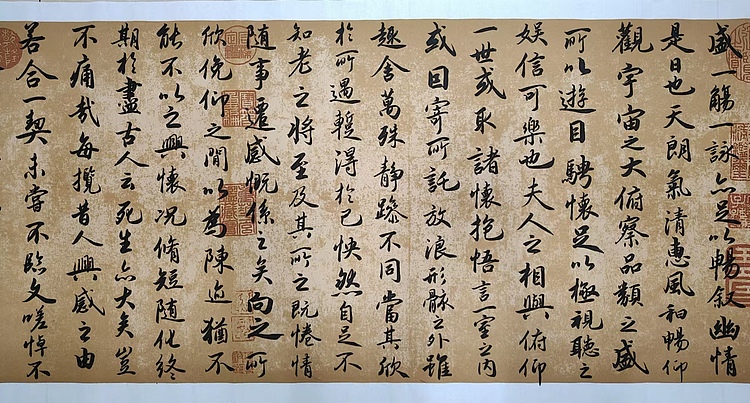 盛一觴一詠亦足以暢叙幽情
是日也天朗氣清惠風和暢仰
觀宇宙之大俯察品類之盛
所以遊目騁懷足以極視聽之
娛信可樂也夫人之相與俯仰
一世或取諸懷抱悟言一室之內
或因寄所託放浪形骸之外雖
趣舍萬殊静躁不同當其欣
於所遇暫得於己怏然自足不
知老之將至及其所之既惓情
随事遷感慨係之矣向之所
欣俛仰之間以為陳迹猶不
能不以之興懷况脩短随化終
期於盡古人云死生亦大矣豈
不痛哉每攬昔人興感之由
若合一契未嘗不臨文嗟悼不